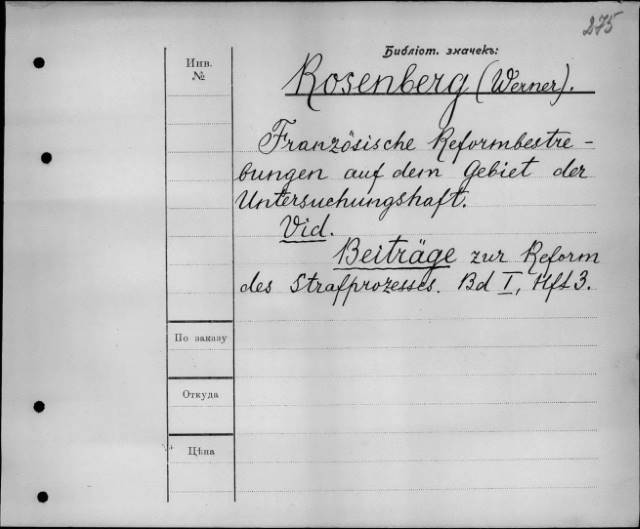 275
Библіот. значекъ:
Инв.
№
Rosenberg (Werner).
Französische Reformbestre-
bungen auf dem Gebiet der
Untersuchungshaft.
Vid.
Beiträge zur Reform
des Strafprozesses. Bd I, Hft 3.
По заказу
Откуда
Цѣна